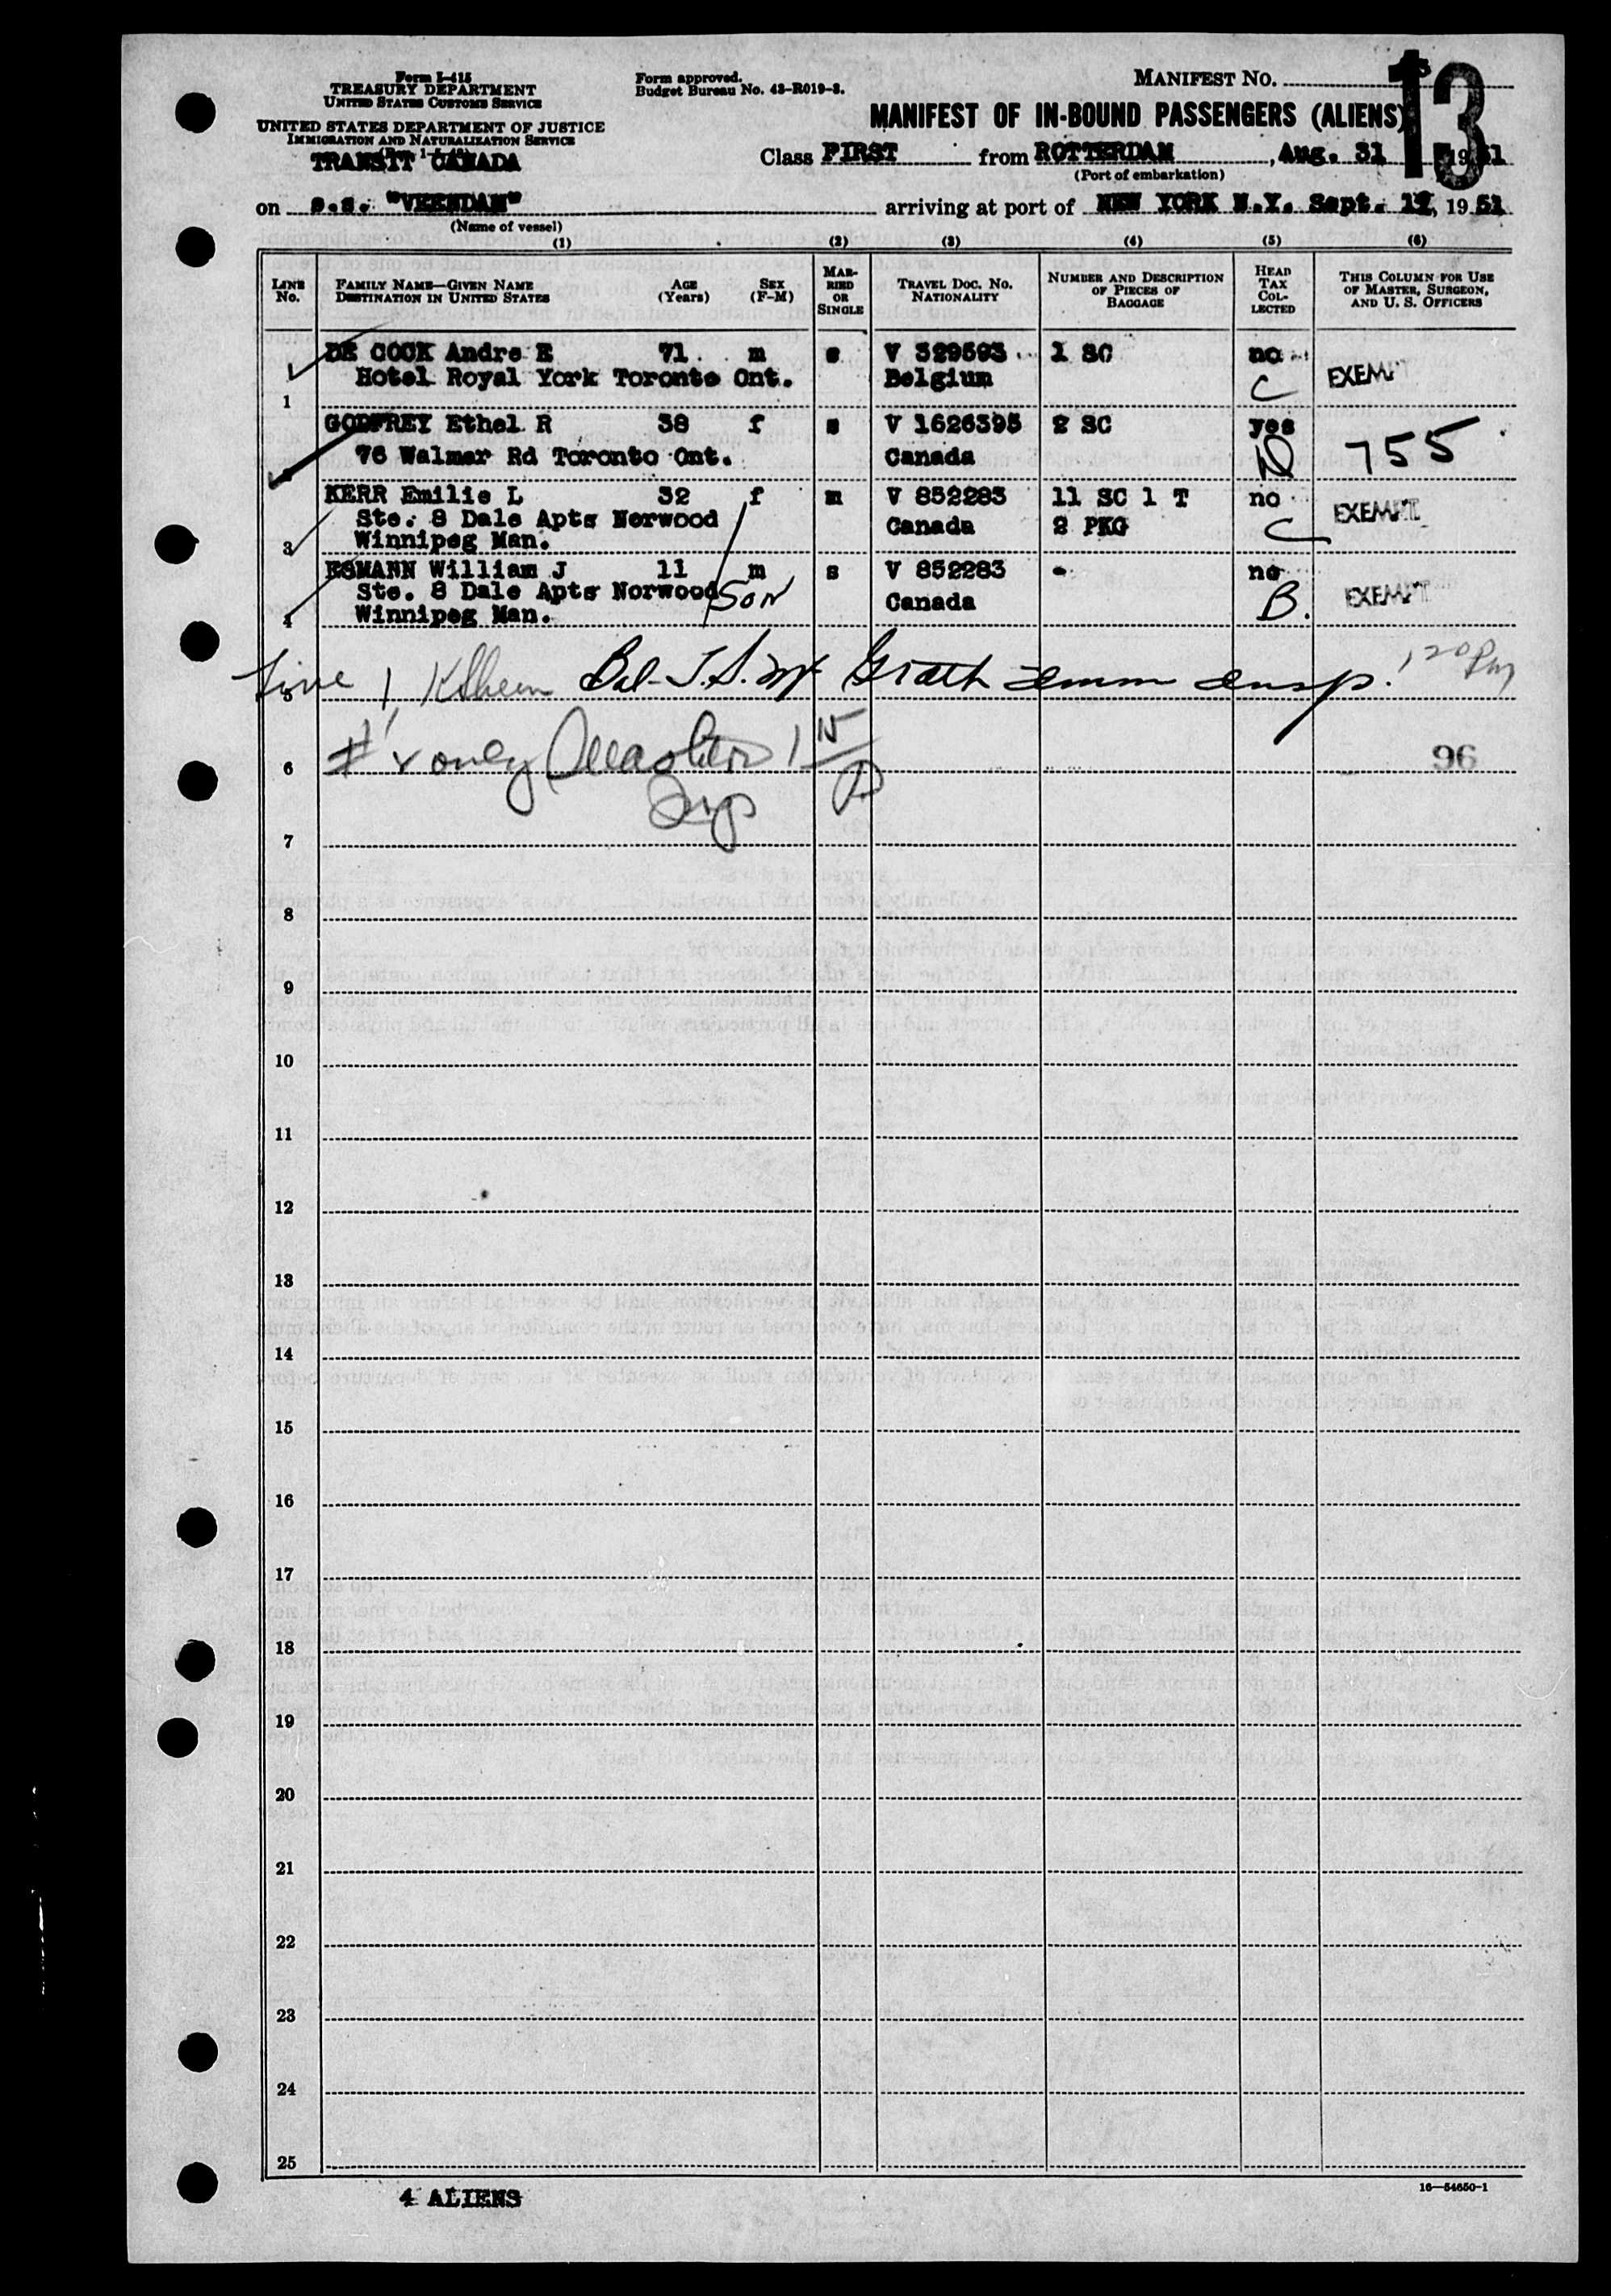 Form I-415
TREASURY DEPARTMENT
UNITED STATES CUSTOMS SERVICE
UNITED STATES DEPARTMENT OF JUSTICE
IMMIGRATION AND NATURALIZATION SERVICE
TRANSIT CANADA
Form approved.
Budget Bureau No. 43-R019-3.
MANIFEST NO.
13
MANIFEST OF IN-BOUND PASSENGERS (ALIENS)
Class FIRST from ROTTERDAM, Aug. 31 1951
(Port of embarkation)
on s.s. "VEENDAM" arriving at port of NEW YORK N.Y. Sept. 1951
(Name of vessel)
(1) (2) (3) (4) (5) (6)
LINE No. FAMILY NAME—GIVEN NAME DESTINATION IN UNITED STATES AGE (Years) SEX (F-M) MARRIED OR SINGLE TRAVEL DOC. NO. NATIONALITY NUMBER AND DESCRIPTION OF PIECES OF BAGGAGE HEAD TAX COLLECTED THIS COLUMN FOR USE OF MASTER, SURGEON, AND U. S. OFFICERS
DE COCK Andre E 71 m s V 329593 1 SC no
Hotel Royal York Toronto Ont. Belgium C EXEMPT
1
GODFREY Ethel R 38 f s V 1626395 2 SC yes
76 Walmer Rd Toronto Ont. Canada 755
KERR Emilie L 32 f m V 852283 11 SC 1 T no
Ste. 8 Dale Apts Norwood Canada 2 PKG C EXEMPT
3 Winnipeg Man.
ESMANN William J 11 m s V 852283 - no
Ste. 8 Dale Apts Norwood Son Canada B. EXEMPT
4 Winnipeg Man.
Line 1 Bal- Immn Insp. 1 20 Pm
5
# only 1 15
6 96
Insp
7
8
9
10
11
12
13
14
15
16
17
18
19
20
21
22
23
24
25
4 ALIENS
16—54650-1